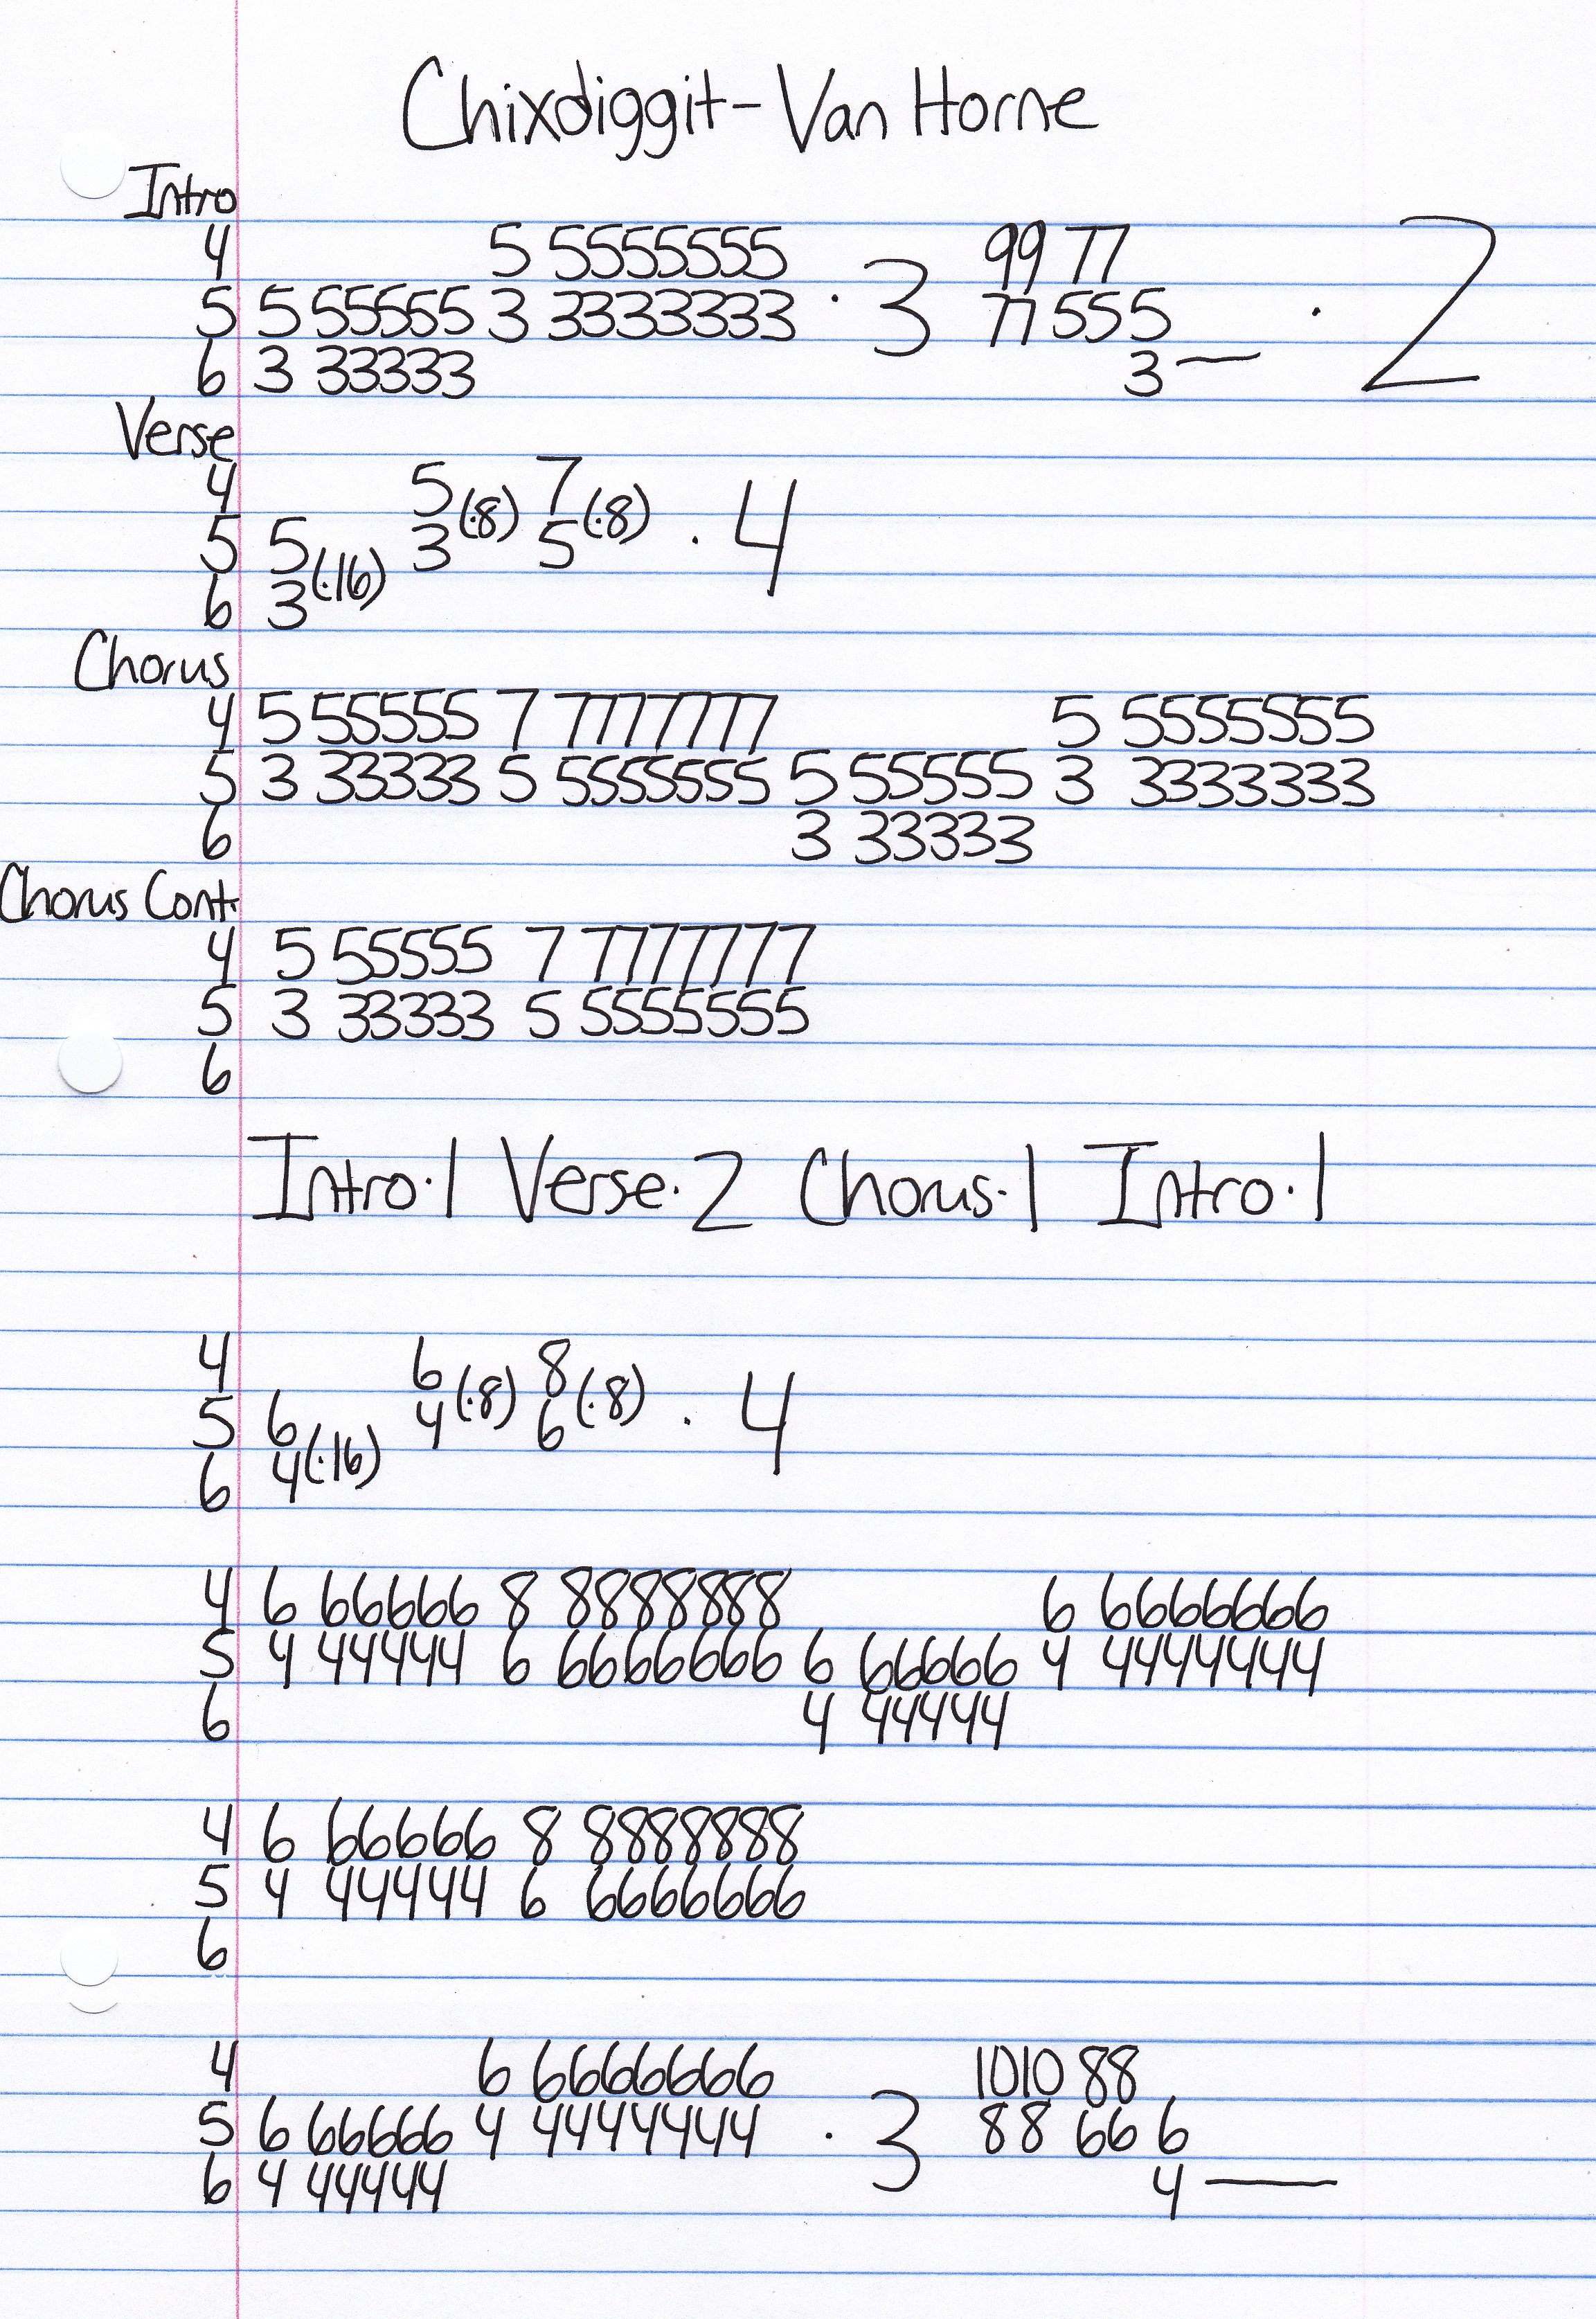 Chixdiggit - Van Horne
Intro
4 5 5555555 99 77
5 5 55555 3 3333333 · 3 77 555 · 2
6 3 33333 3 —
Verse
4 5 (·8) 7 (·8) · 4
5 5 (·16) 3 5
6 3
Chorus
4 5 55555 7 7777777 5 5555555
5 3 33333 5 5555555 5 55555 3 3333333
6 3 33333
Chorus Cont.
4 5 55555 7 7777777
5 3 33333 5 5555555
6
Intro·1 Verse·2 Chorus·1 Intro·1
4 6 (·8) 8 (·8) · 4
5 6 (·16) 4 6
6 4
4 6 66666 8 8888888 6 6666666
5 4 44444 6 6666666 6 66666 4 4444444
6 4 44444
4 6 66666 8 8888888
5 4 44444 6 6666666
6
4 6 6666666 1010 88
5 6 66666 4 4444444 · 3 88 66 6
6 4 44444 4 —